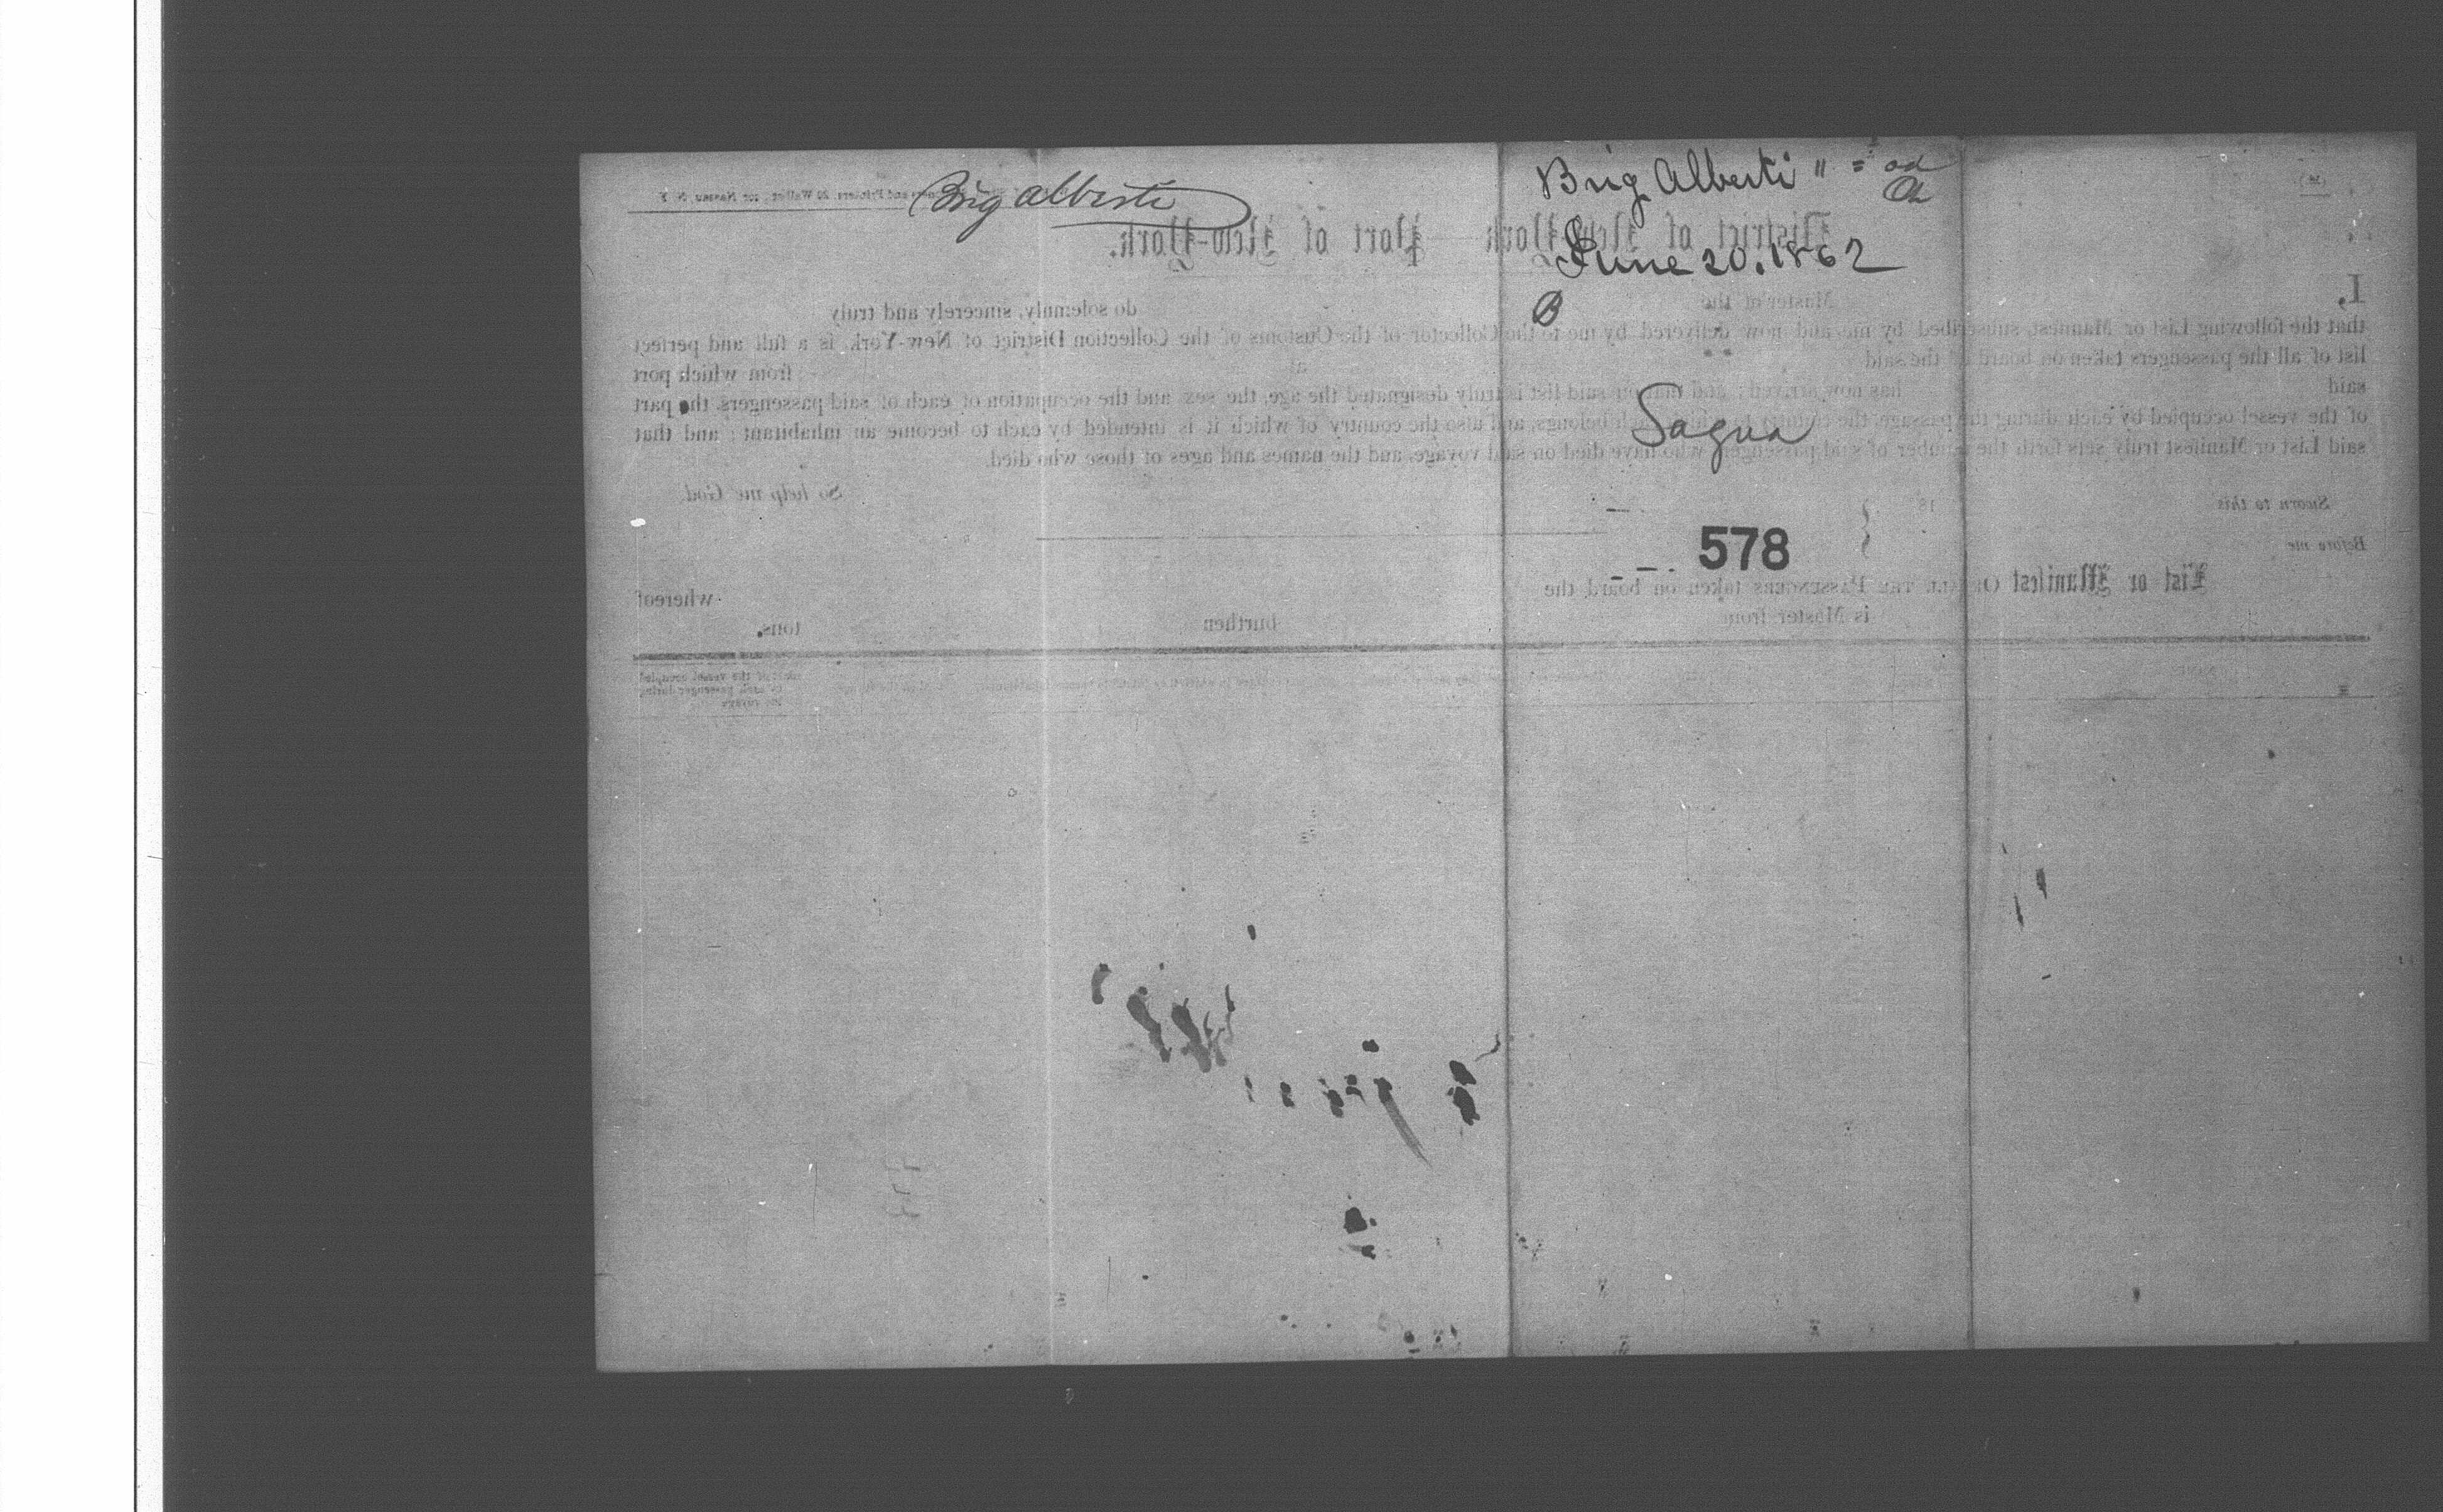 Brig Alberti
Brig Alberti "
June 20. 1862
B
Sagua
578
District of New-York Port of New-York.
I, Master of the do solemnly, sincerely and truly
that the following List or Manifest, subscribed by me and now delivered by me to the Collector of the Customs of the Collection District of New-York, is a full and perfect
list of all the passengers taken on board of the said at from which port
said has now arrived; and that on said list is truly designated the age, the sex and the occupation of each of said passengers, the part
of the vessel occupied by each during the passage, the country to which each belongs, and also the country of which it is intended by each to become an inhabitant; and that
said List or Manifest truly sets forth the number of said passengers who have died on said voyage, and the names and ages of those who died.
So help me God.
Sworn to this 18
Before me
List or Manifest OF ALL THE PASSENGERS taken on board the whereof
is Master from burthen tons.
part of the vessel occupied
by each passenger during
the voyage